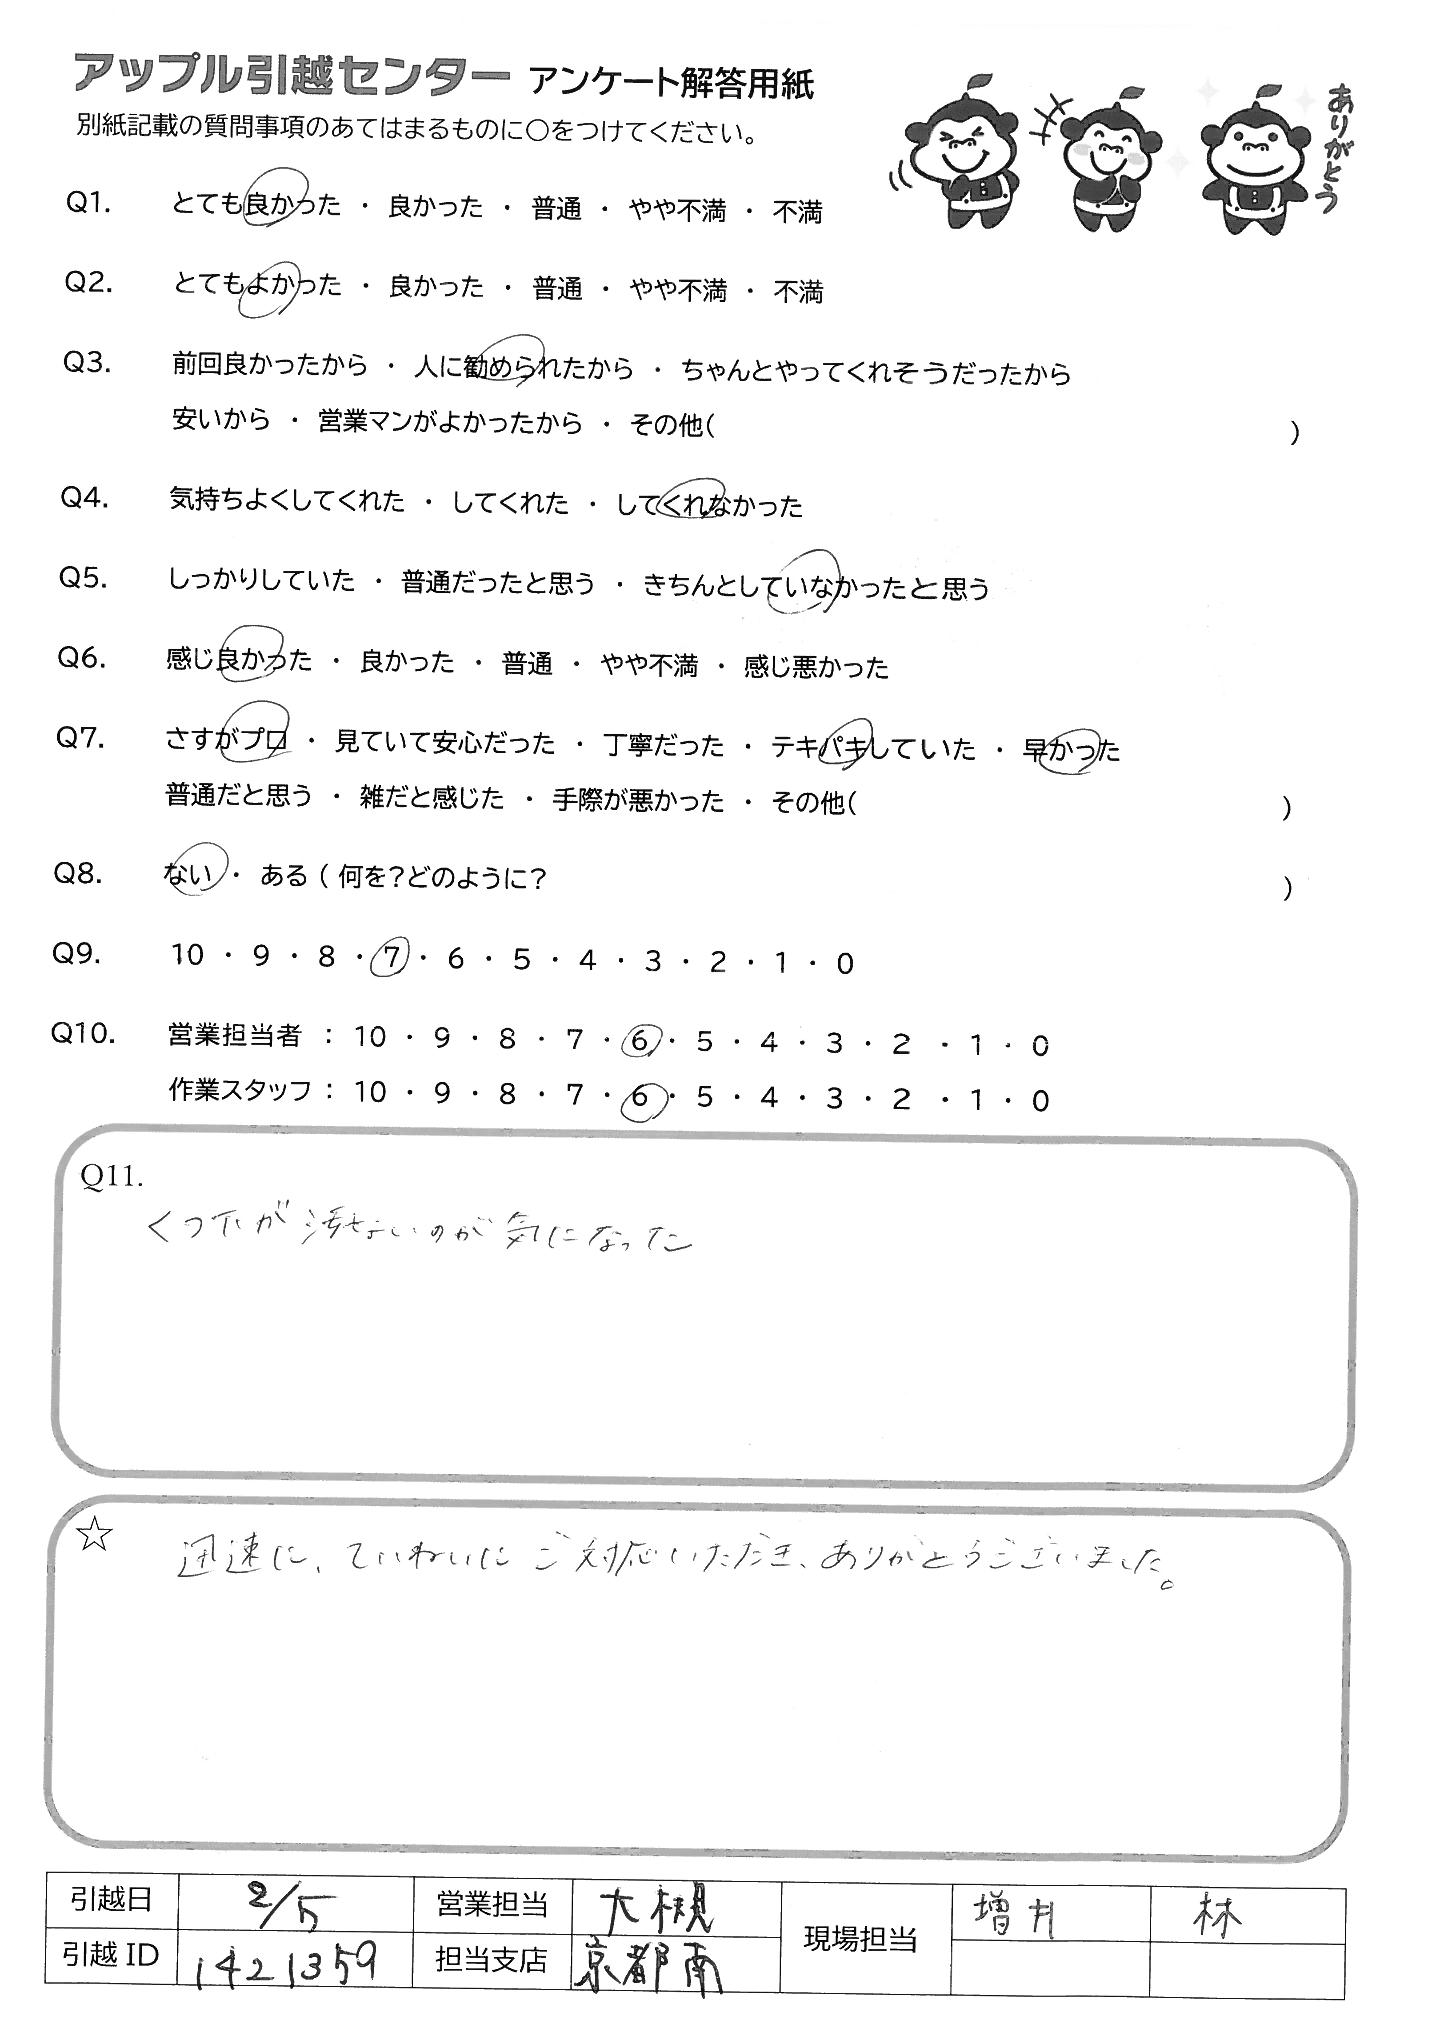 アップル引越センター アンケート解答用紙
別紙記載の質問事項のあてはまるものに○をつけてください。
ありがとう
Q1. とても良かった ・ 良かった ・ 普通 ・ やや不満 ・ 不満
Q2. とてもよかった ・ 良かった ・ 普通 ・ やや不満 ・ 不満
Q3. 前回良かったから ・ 人に勧められたから ・ ちゃんとやってくれそうだったから
安いから ・ 営業マンがよかったから ・ その他( )
Q4. 気持ちよくしてくれた ・ してくれた ・ してくれなかった
Q5. しっかりしていた ・ 普通だったと思う ・ きちんとしていなかったと思う
Q6. 感じ良かった ・ 良かった ・ 普通 ・ やや不満 ・ 感じ悪かった
Q7. さすがプロ ・ 見ていて安心だった ・ 丁寧だった ・ テキパキしていた ・ 早かった
普通だと思う ・ 雑だと感じた ・ 手際が悪かった ・ その他( )
Q8. ない ・ ある ( 何を?どのように? )
Q9. 10 ・ 9 ・ 8 ・ 7 ・ 6 ・ 5 ・ 4 ・ 3 ・ 2 ・ 1 ・ 0
Q10. 営業担当者 : 10 ・ 9 ・ 8 ・ 7 ・ 6 ・ 5 ・ 4 ・ 3 ・ 2 ・ 1 ・ 0
作業スタッフ : 10 ・ 9 ・ 8 ・ 7 ・ 6 ・ 5 ・ 4 ・ 3 ・ 2 ・ 1 ・ 0
Q11.
くつ下が 気になった
☆ 迅速に、ていねいに ご対応いただき、ありがとうございました。
引越日 2/5 営業担当 大槻 現場担当 増井 林
引越ID 1421359 担当支店 京都南